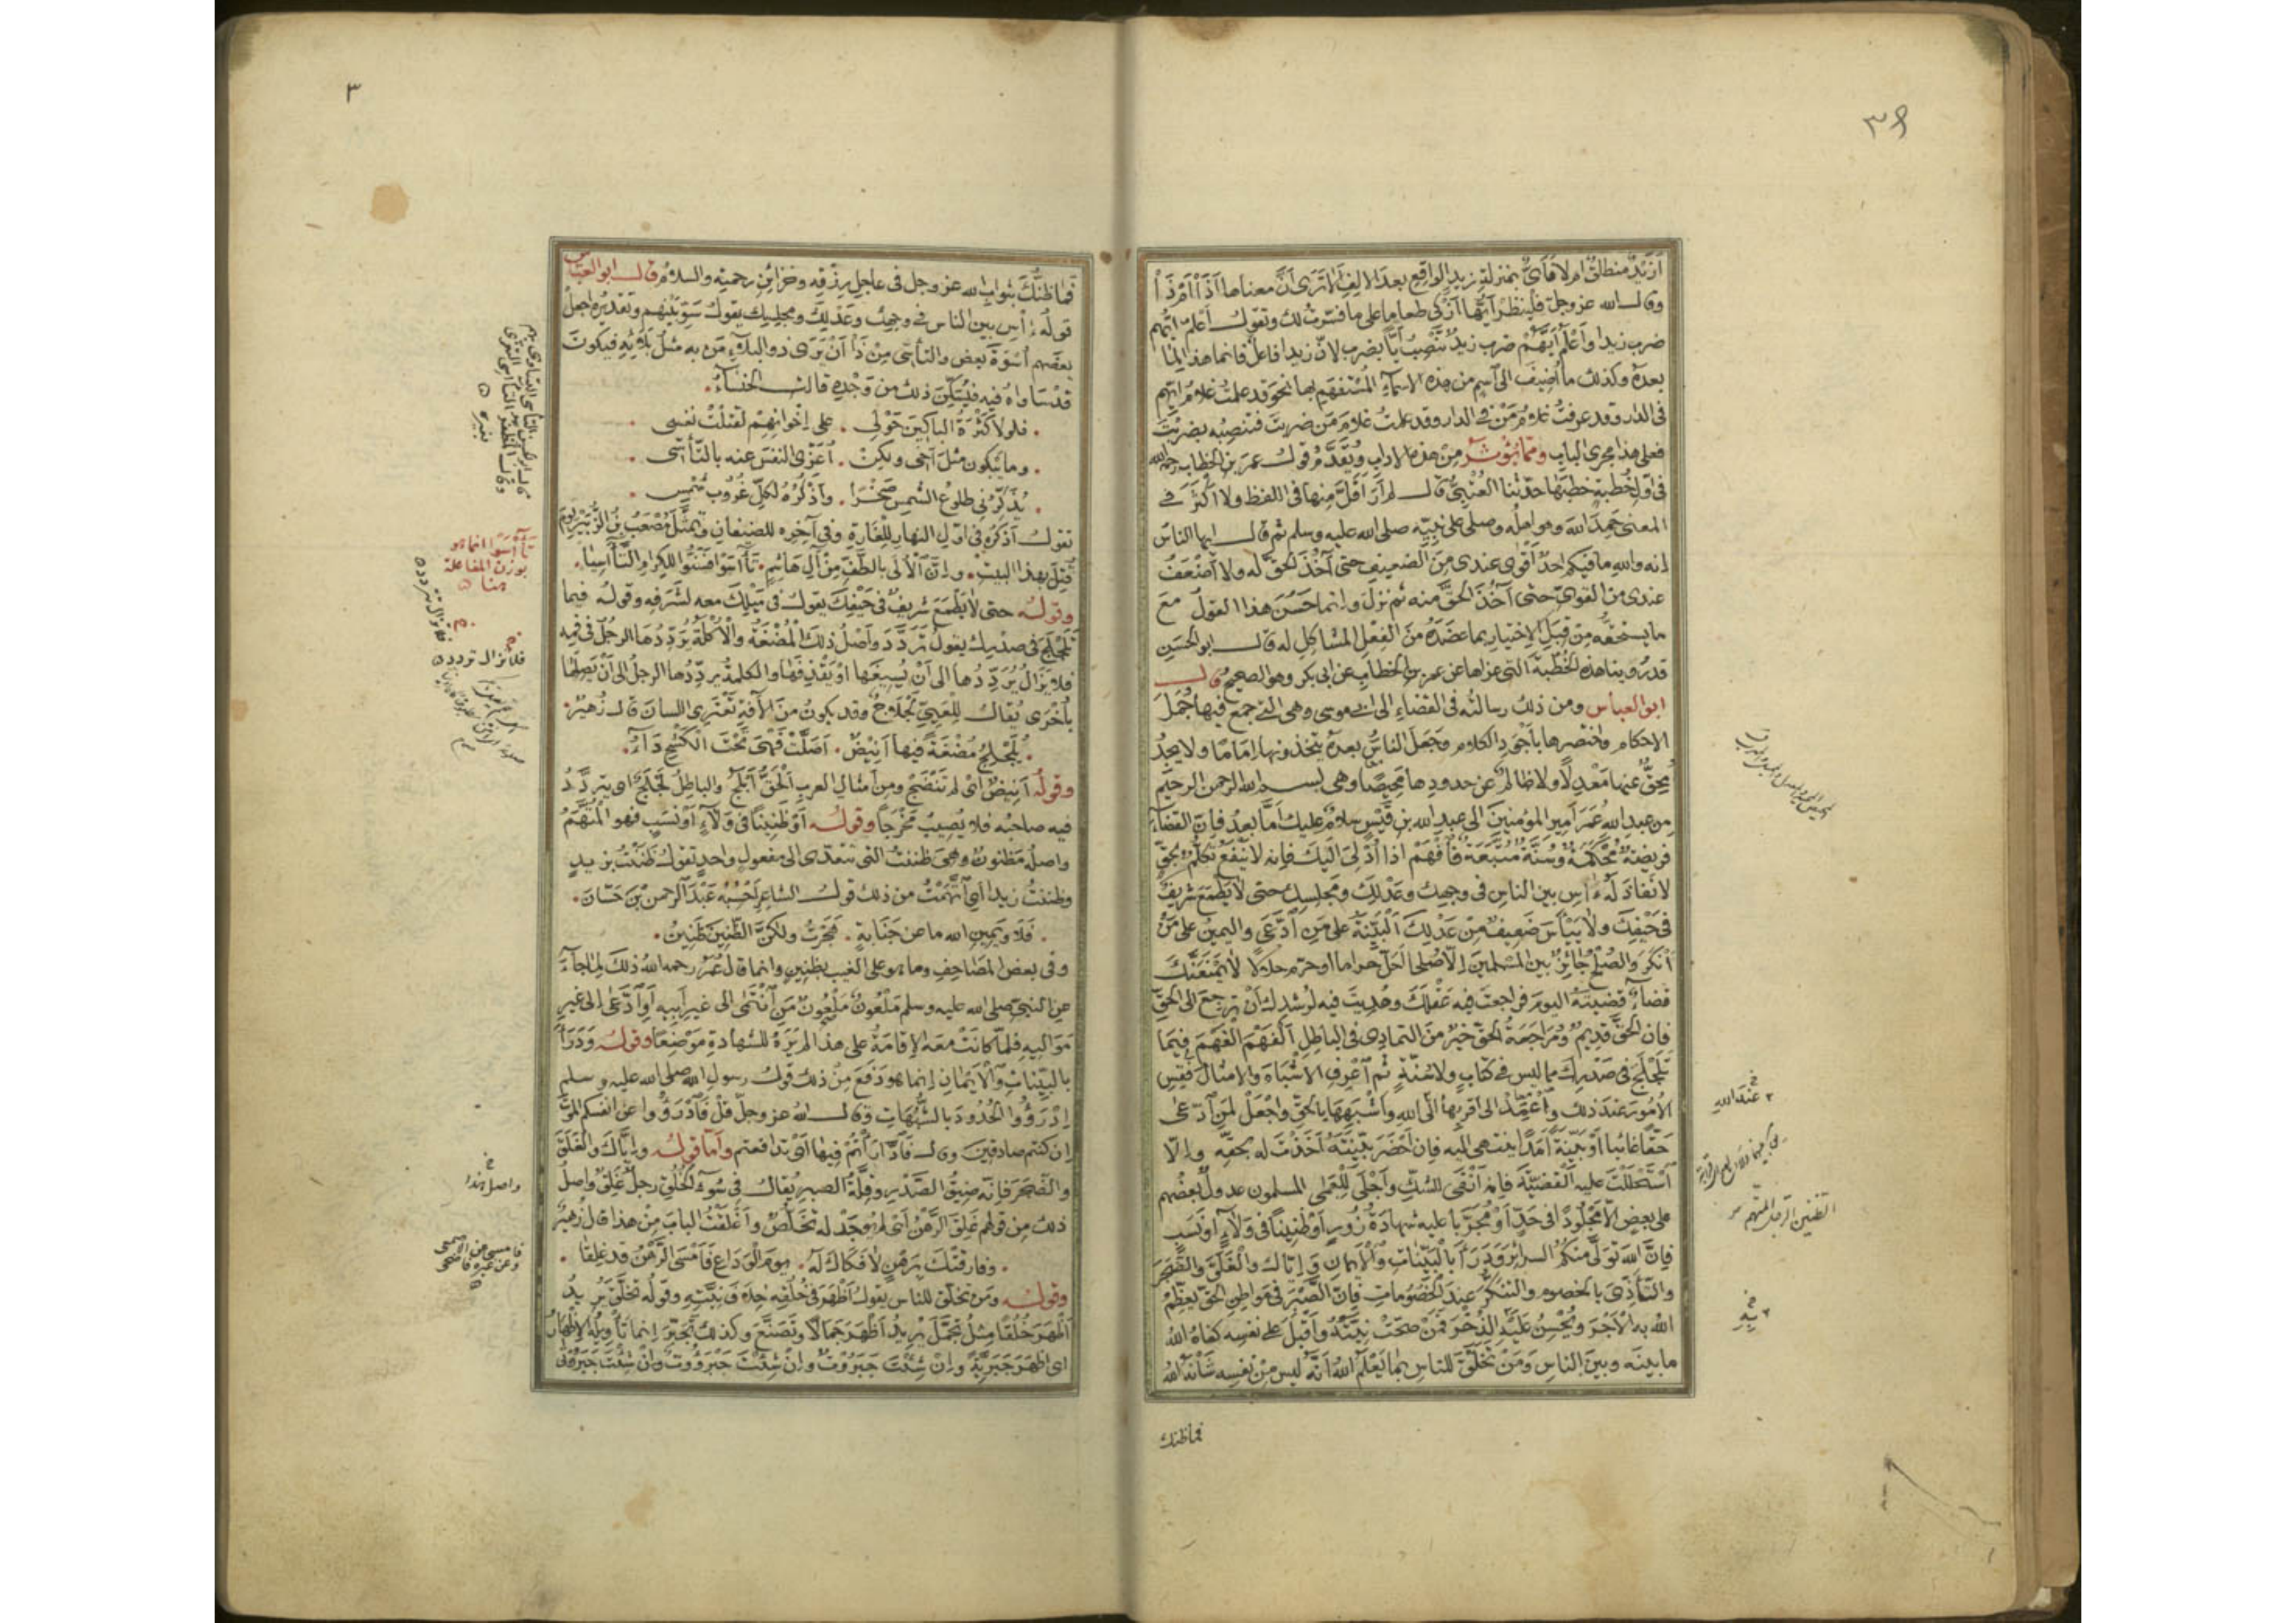 أزيد منطلق أم لا فأي بمنزلة زيد الواقع بعد الالف ألا ترى أن معناها أذا أم ذا
وقال الله عز وجل فلينظر أيها أزكى طعاما على ما فسرت لك وتقول أعلم أيهم
ضرب زيدا وأعلم أيهم ضرب زيد تنصب أيا بضرب لان زيدا فاعل فانما هذا لما
بعده وكذلك ما أضيف الى اسم من هذه الاسماء المستفهم بها نحو قد علمت غلام أيهم
فى الدار وقد عرفت غلام من في الدار وقد علمت غلام من ضربت فتنصبه بضربت
فعلى هذا مجرى الباب ومما يؤثر من هذه الاداب ويقدم قول عمر بن الخطاب رحمه الله
فى أول خطبة خطبها حدثنا العتبي قال لم أر أقل منها فى اللفظ ولا أكثر في
المعنى حمد الله وهو أهله وصلى على نبيه صلى الله عليه وسلم ثم قال ايها الناس
إنه والله ما فيكم احد أقوى عندى من الضعيف حتى آخذ الحق له ولا أضعف
عندى من القوى حتى آخذ الحق منه ثم نزل وإنما حسن هذا القول مع
ما يستحقه من قبل الاختيار بما عضده من الفعل المشاكل له قال ابو الحسن
قد روينا هذه الخطبة التى عزاها عن عمر بن الخطاب عن ابى بكر وهو الصحيح قال
ابو العباس ومن ذلك رسالته فى القضاء الى ابي موسى وهى التي جمع فيها جمل
الاحكام واختصرها بأجود الكلام وجعل الناس بعده يتخذونها إماما ولا يجد
محق عنها معدلا ولا ظالم عن حدودها محيصا وهى بسم الله الرحمن الرحيم
من عبد الله عمر أمير المؤمنين الى عبد الله بن قيس سلام عليك أما بعد فان القضاء
فريضة محكمة وسنة متبعة فافهم اذا أدلى اليك فإنه لا ينفع تكلم بحق
لا نفاذ له ءاس بين الناس فى وجهك وعدلك ومجلسك حتى لا يطمع شريف
فى حيفك ولا ييأس ضعيف من عدلك البينة على من ادعى واليمين على من
أنكر والصلح جائز بين المسلمين إلا صلحا احل حراما او حرم حلالا لا يمنعنك
قضاء قضيته اليوم فراجعت فيه عقلك وهديت فيه لرشدك أن ترجع الى الحق
فان الحق قديم ومراجعة الحق خير من التمادى فى الباطل الفهم الفهم فيما
تلجلج فى صدرك مما ليس في كتاب ولا سنة ثم اعرف الاشباه والامثال فقس
الامور عند ذلك واعمد الى اقربها الى الله واشبهها بالحق واجعل لمن ادعى
حقا غائبا أو بينة أمدا ينتهى اليه فإن أحضر بينته أخذت له بحقه وإلا
استحللت عليه القضية فإنه أنفى للشك وأجلى للعمى المسلمون عدول بعضهم
على بعض إلا مجلودا فى حد أو مجربا عليه شهادة زور أو ظنينا فى ولاء أو نسب
فإن الله تولى منكم السرائر ودرأ بالبينات والأيمان وإياك والغلق والضجر
والتأذى بالخصوم والتنكر عند الخصومات فإن الصبر فى مواطن الحق يعظم
الله به الأجر ويحسن عليه الذخر فمن صحت نيته وأقبل على نفسه كفاه الله
ما بينه وبين الناس ومن تخلق للناس بما يعلم الله أنه ليس من نفسه شانه الله
فما ظنك
عند الله
الظنين الرجل المتهم
به
٣
فما ظنك بثواب الله عز وجل فى عاجل رزقه وخزائن رحمته والسلام قال ابو العباس
قوله ءاس بين الناس في وجهك وعدلك ومجلسك يقول سو بينهم وتقديره اجعل
بعضهم أسوة بعض والتأسى من ذا أن يرى ذو البلاء من به مثل بلائه فيكون
قد ساواه فيه فيسكن ذلك من وجده قالت الخنساء
فلولا كثرة الباكين حولى . على إخوانهم لقتلت نفسى
وما يبكون مثل أخى ولكن . أعزى النفس عنه بالتأسى
يذكرنى طلوع الشمس صخرا . وأذكره لكل غروب شمس
تقول أذكره فى اول النهار للغارة وفى آخره للضيفان وتمثل مصعب بن الزبير يوم
قتل بهذا البيت . وإن الألى بالطف من آل هاشم . تأاسوا فسنوا للكرام التأاسيا
وقوله حتى لا يطمع شريف فى حيفك يقول فى ميلك معه لشرفه وقوله فيما
تلجلج فى صدرك يقول تردد وأصل ذلك المضغة والأكلة يرددها الرجل فى فيه
فلا يزال يرددها الى أن يسيغها أو يقذفها والكلمة يرددها الرجل الى أن يصلها
بأخرى يقال للعيى لجلاج وقد يكون من الآفة تعترى اللسان قال زهير
يلجلج مضغة فيها أنيض . أصلت فهى تحت الكشح داء
وقوله أنيض أى لم تنضج ومن أمثال العرب الحق أبلج والباطل لجلج اى يتردد
فيه صاحبه فلا يصيب مخرجا وقوله أو ظنينا فى ولاء أو نسب فهو المتهم
واصله مظنون وهى ظننت التى تتعدى الى مفعول واحد تقول ظننت بزيد
وظننت زيدا أي اتهمت من ذلك قول الشاعر أحسبه عبد الرحمن بن حسان
فلا ويمين الله ما عن جناية . هجرت ولكن الظنين ظنين
وفى بعض المصاحف وما هو على الغيب بظنين وانما قال عمر رحمه الله ذلك لما جاء
عن النبى صلى الله عليه وسلم ملعون ملعون من انتمى الى غير ابيه أو ادعى إلى غير
مواليه فلما كانت معه الإقامة على هذا لم يره للشهادة موضعا وقوله ودرأ
بالبينات والأيمان إنما هو دفع من ذلك قول رسول الله صلى الله عليه وسلم
إدرؤوا الحدود بالشبهات وقال الله عز وجل قل فادرؤوا عن أنفسكم الموت
إن كنتم صادقين وقال فادارأتم فيها أى تدافعتم وأما قوله وإياك والغلق
والضجر فإنه ضيق الصدر وقلة الصبر يقال فى سوء الخلق رجل غلق وأصل
ذلك من قولهم غلق الرهن أى لم يوجد له تخلص وأغلقت الباب من هذا قال زهير
وفارقتك برهن لا فكاك له . يوم الوداع فأمسى الرهن قد غلقا
وقوله ومن تخلق للناس يقول أظهر فى خلقه خلاف نيته وقوله تخلق يريد
أظهر خلقا مثل تجمل يريد أظهر جمالا وتصنع وكذلك تجبر إنما تأويله الإظهار
اى اظهر جبرية وإن شئت جبروت وإن شئت جبروؤت وإن شئت جبروتى
تأاسوا انما هو
بوزن المفاعلة
هنا
فلا تزال تردد
واصل هذا